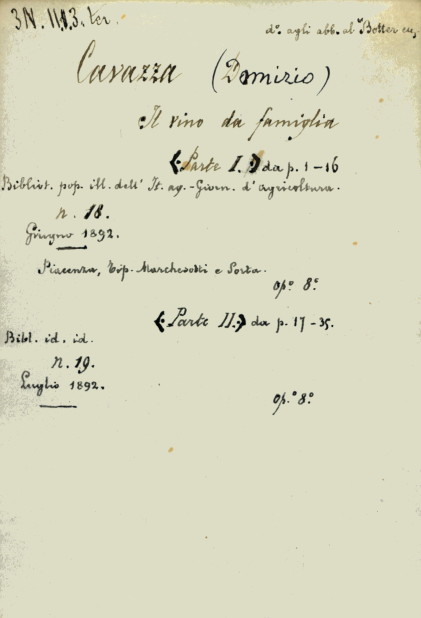 3N. 1113. ter.
d.° agli abb. al Botter
Cavazza (Domizio)
Il vino da famiglia
(Parte I.) da p. 1-16
Bibliot. pop. ill. dell' It. ag. - Giorn. d' agricoltura.
n. 18.
Giugno 1892.
Piacenza, Tip. Marchesotti e Porta.
op.° 8.°
(Parte II.) da p. 17-35.
Bibl. id. id.
n. 19.
Luglio 1892.
op.° 8.°